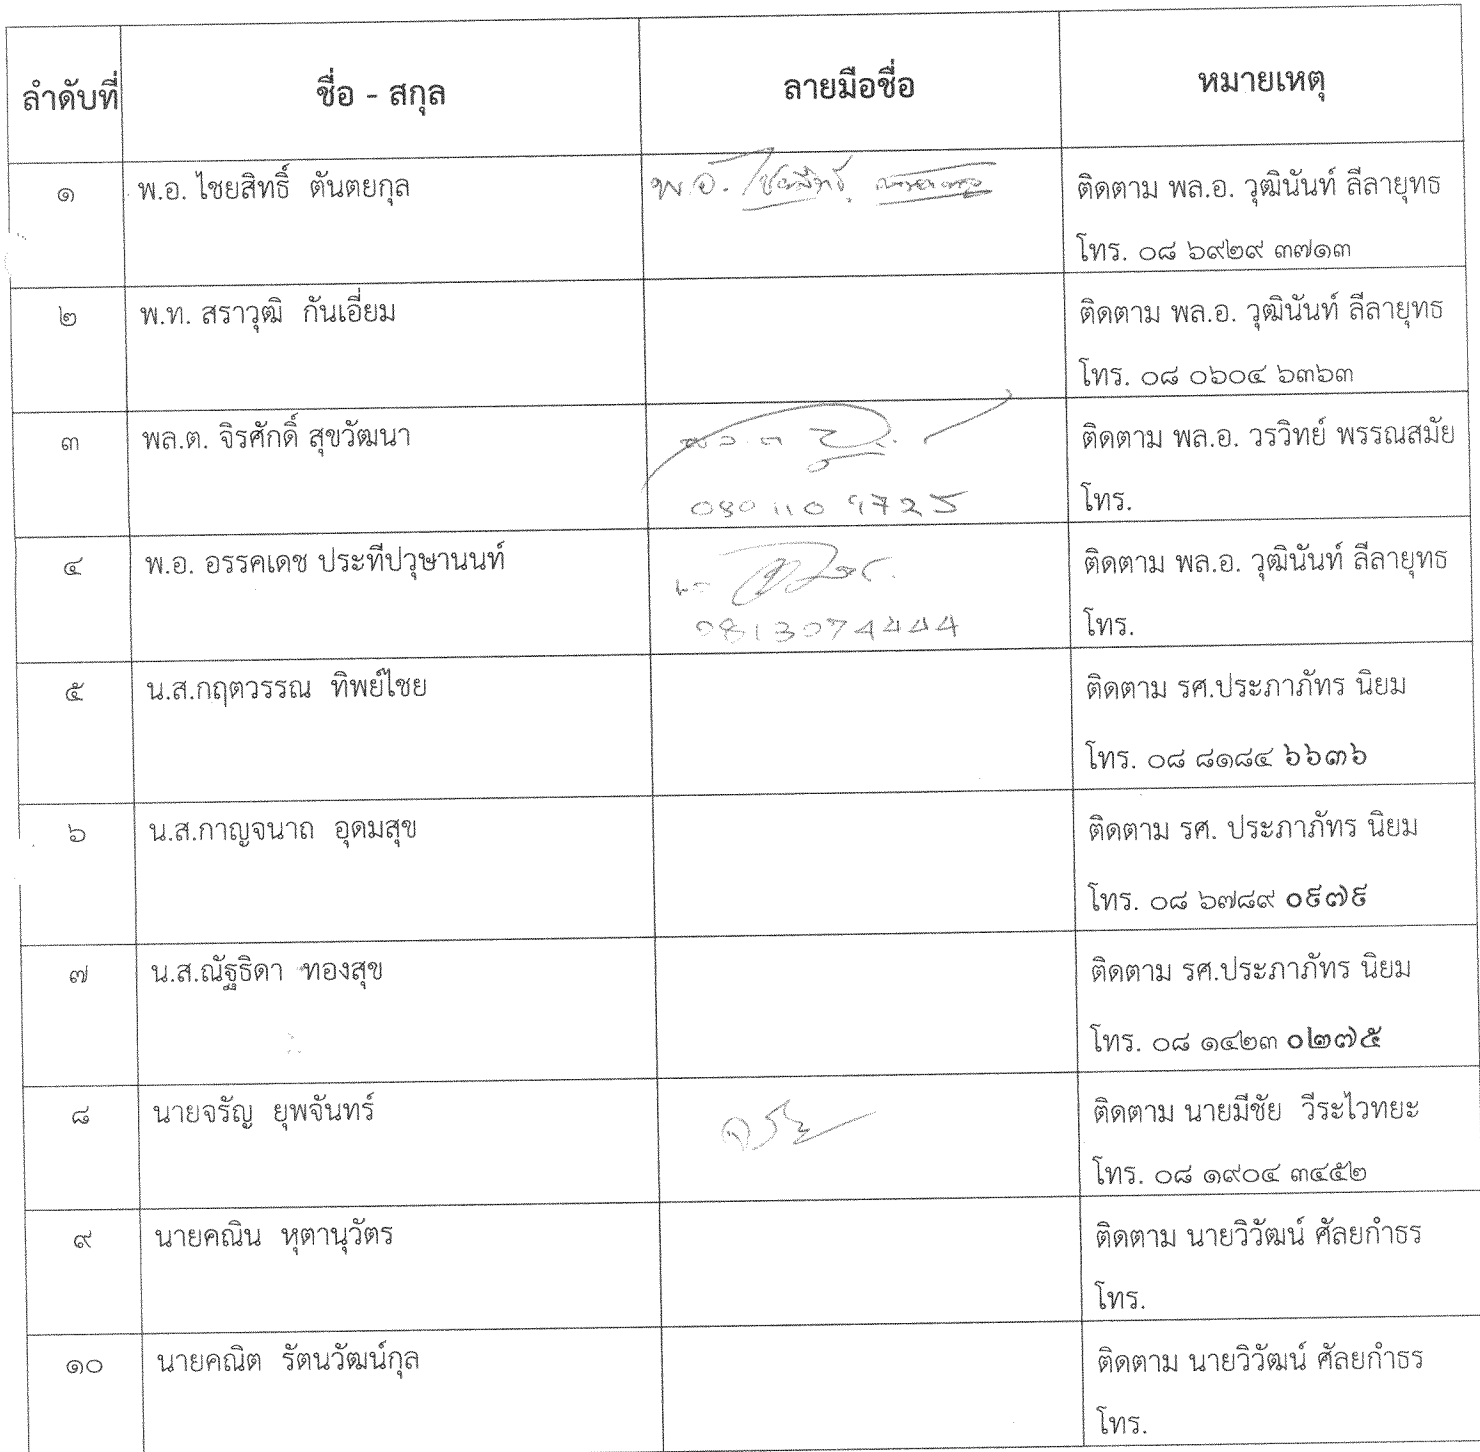 ลำดับที่ ชื่อ - สกุล ลายมือชื่อ หมายเหตุ
๑ พ.อ. ไชยสิทธิ์ ตันตยกุล พ.อ. ไชยสิทธิ์ ติดตาม พล.อ. วุฒินันท์ ลีลายุทธ
โทร. ๐๘ ๖๙๒๙ ๓๗๑๓
๒ พ.ท. สราวุฒิ กันเอี่ยม ติดตาม พล.อ. วุฒินันท์ ลีลายุทธ
โทร. ๐๘ ๐๖๐๔ ๖๓๖๓
๓ พล.ต. จิรศักดิ์ สุขวัฒนา พล.ต ติดตาม พล.อ. วรวิทย์ พรรณสมัย
โทร.
๔ พ.อ. อรรคเดช ประทีปวุษานนท์ ติดตาม พล.อ. วุฒินันท์ ลีลายุทธ
0813074444 โทร.
๕ น.ส.กฤตวรรณ ทิพย์ไชย ติดตาม รศ.ประภาภัทร นิยม
โทร. ๐๘ ๘๑๘๔ ๖๖๓๖
๖ น.ส.กาญจนาถ อุดมสุข ติดตาม รศ. ประภาภัทร นิยม
โทร. ๐๘ ๖๗๘๙ ๐๙๗๙
๗ น.ส.ณัฐธิดา ทองสุข ติดตาม รศ.ประภาภัทร นิยม
โทร. ๐๘ ๑๔๒๓ ๐๒๗๕
๘ นายจรัญ ยุพจันทร์ จรัญ ติดตาม นายมีชัย วีระไวทยะ
โทร. ๐๘ ๑๙๐๔ ๓๔๕๒
๙ นายคณิน หุตานุวัตร ติดตาม นายวิวัฒน์ ศัลยกำธร
โทร.
๑๐ นายคณิต รัตนวัฒน์กุล ติดตาม นายวิวัฒน์ ศัลยกำธร
โทร.